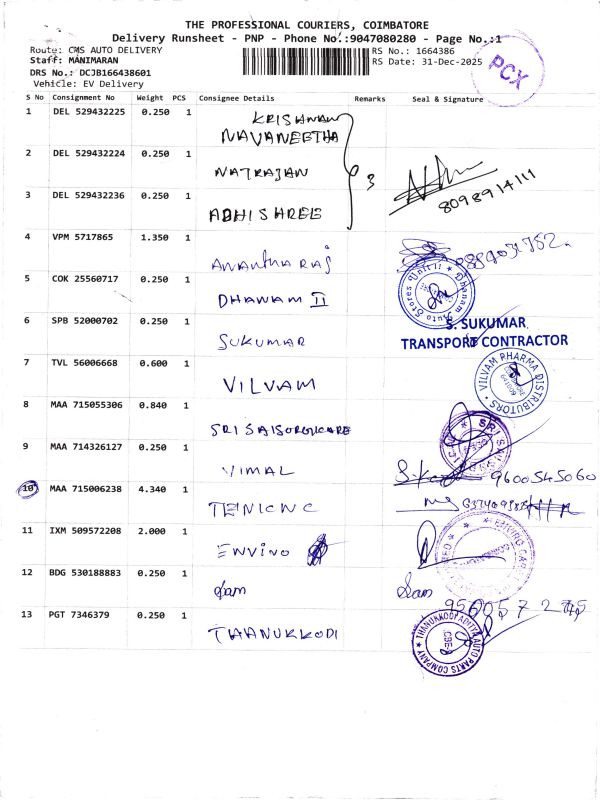 THE PROFESSIONAL COURIERS, COIMBATORE
Delivery Runsheet - PNP - Phone No.:9047080280 - Page No.:1
Route: CMS AUTO DELIVERY RS No.: 1664386
Staff: MANIMARAN RS Date: 31-Dec-2025
DRS No.: DCJB166438601
Vehicle: EV Delivery
PCX
S No Consignment No Weight PCS Consignee Details Remarks Seal & Signature
1 DEL 529432225 0.250 1 KRISHNAN
NAVANEETHA
2 DEL 529432224 0.250 1
NATRAJAN 3
8098914111
3 DEL 529432236 0.250 1
ABHISHREE
4 VPM 5717865 1.350 1
ANANTHARAJ
5 COK 25560717 0.250 1
DHANAM II Dhanam Auto Stores Unit II
6 SPB 52000702 0.250 1 S. SUKUMAR
SUKUMAR TRANSPORT CONTRACTOR
7 TVL 56006668 0.600 1
VILVAM VILVAM PHARMA DISTRIBUTORS
8 MAA 715055306 0.840 1
9 MAA 714326127 0.250 1
VIMAL 9600545060
10 MAA 715006238 4.340 1
11 IXM 509572208 2.000 1
ENVIRO
12 BDG 530188883 0.250 1
Sam Sam
13 PGT 7346379 0.250 1
THANUKKODI THANUKKODI ADITYA AUTO PARTS COMPANY
CBE